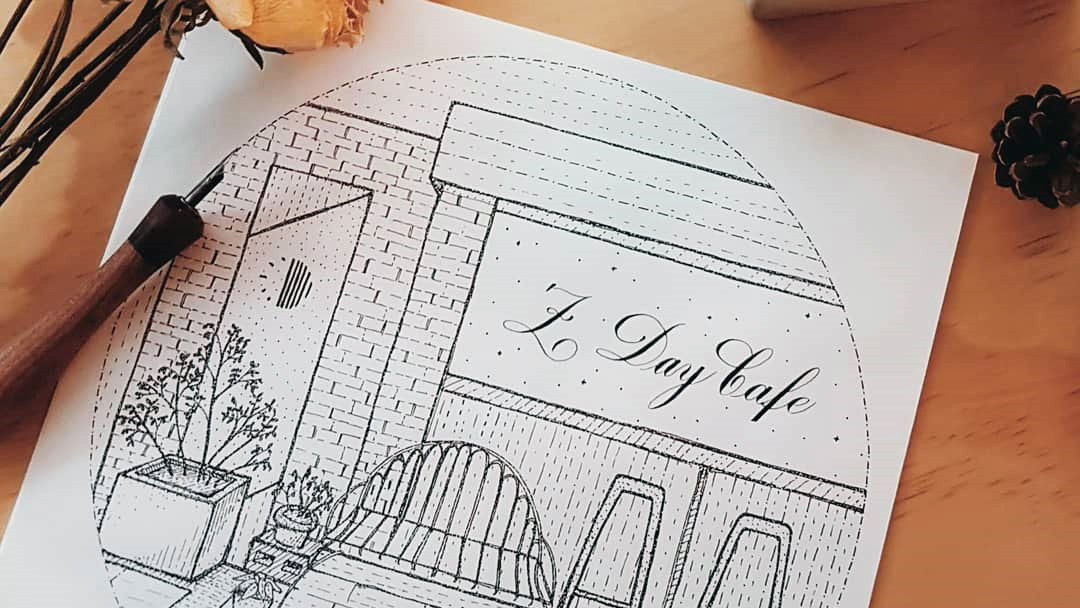 Z Day Cafe